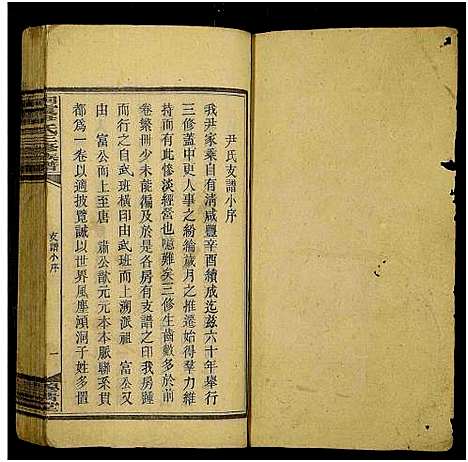 尹氏支譜小序
我尹家乘自有清咸豐辛酉續成迄茲六十年舉行
三修蓋中更人事之紛綸歲月之推遷始得羣力維
持而有此慘淡經營也噫難矣三修生齒數多於前
卷繁冊少未能偏及於是各房有支譜之印我房踵
而行之自武班橫印由武班而上溯派祖　富公又
由　富公而上至唐　肅公猷元元本本脈聯系貫
都為一卷以適披覽誠以世界風塵澒洞子姓多慣
支譜小序
一